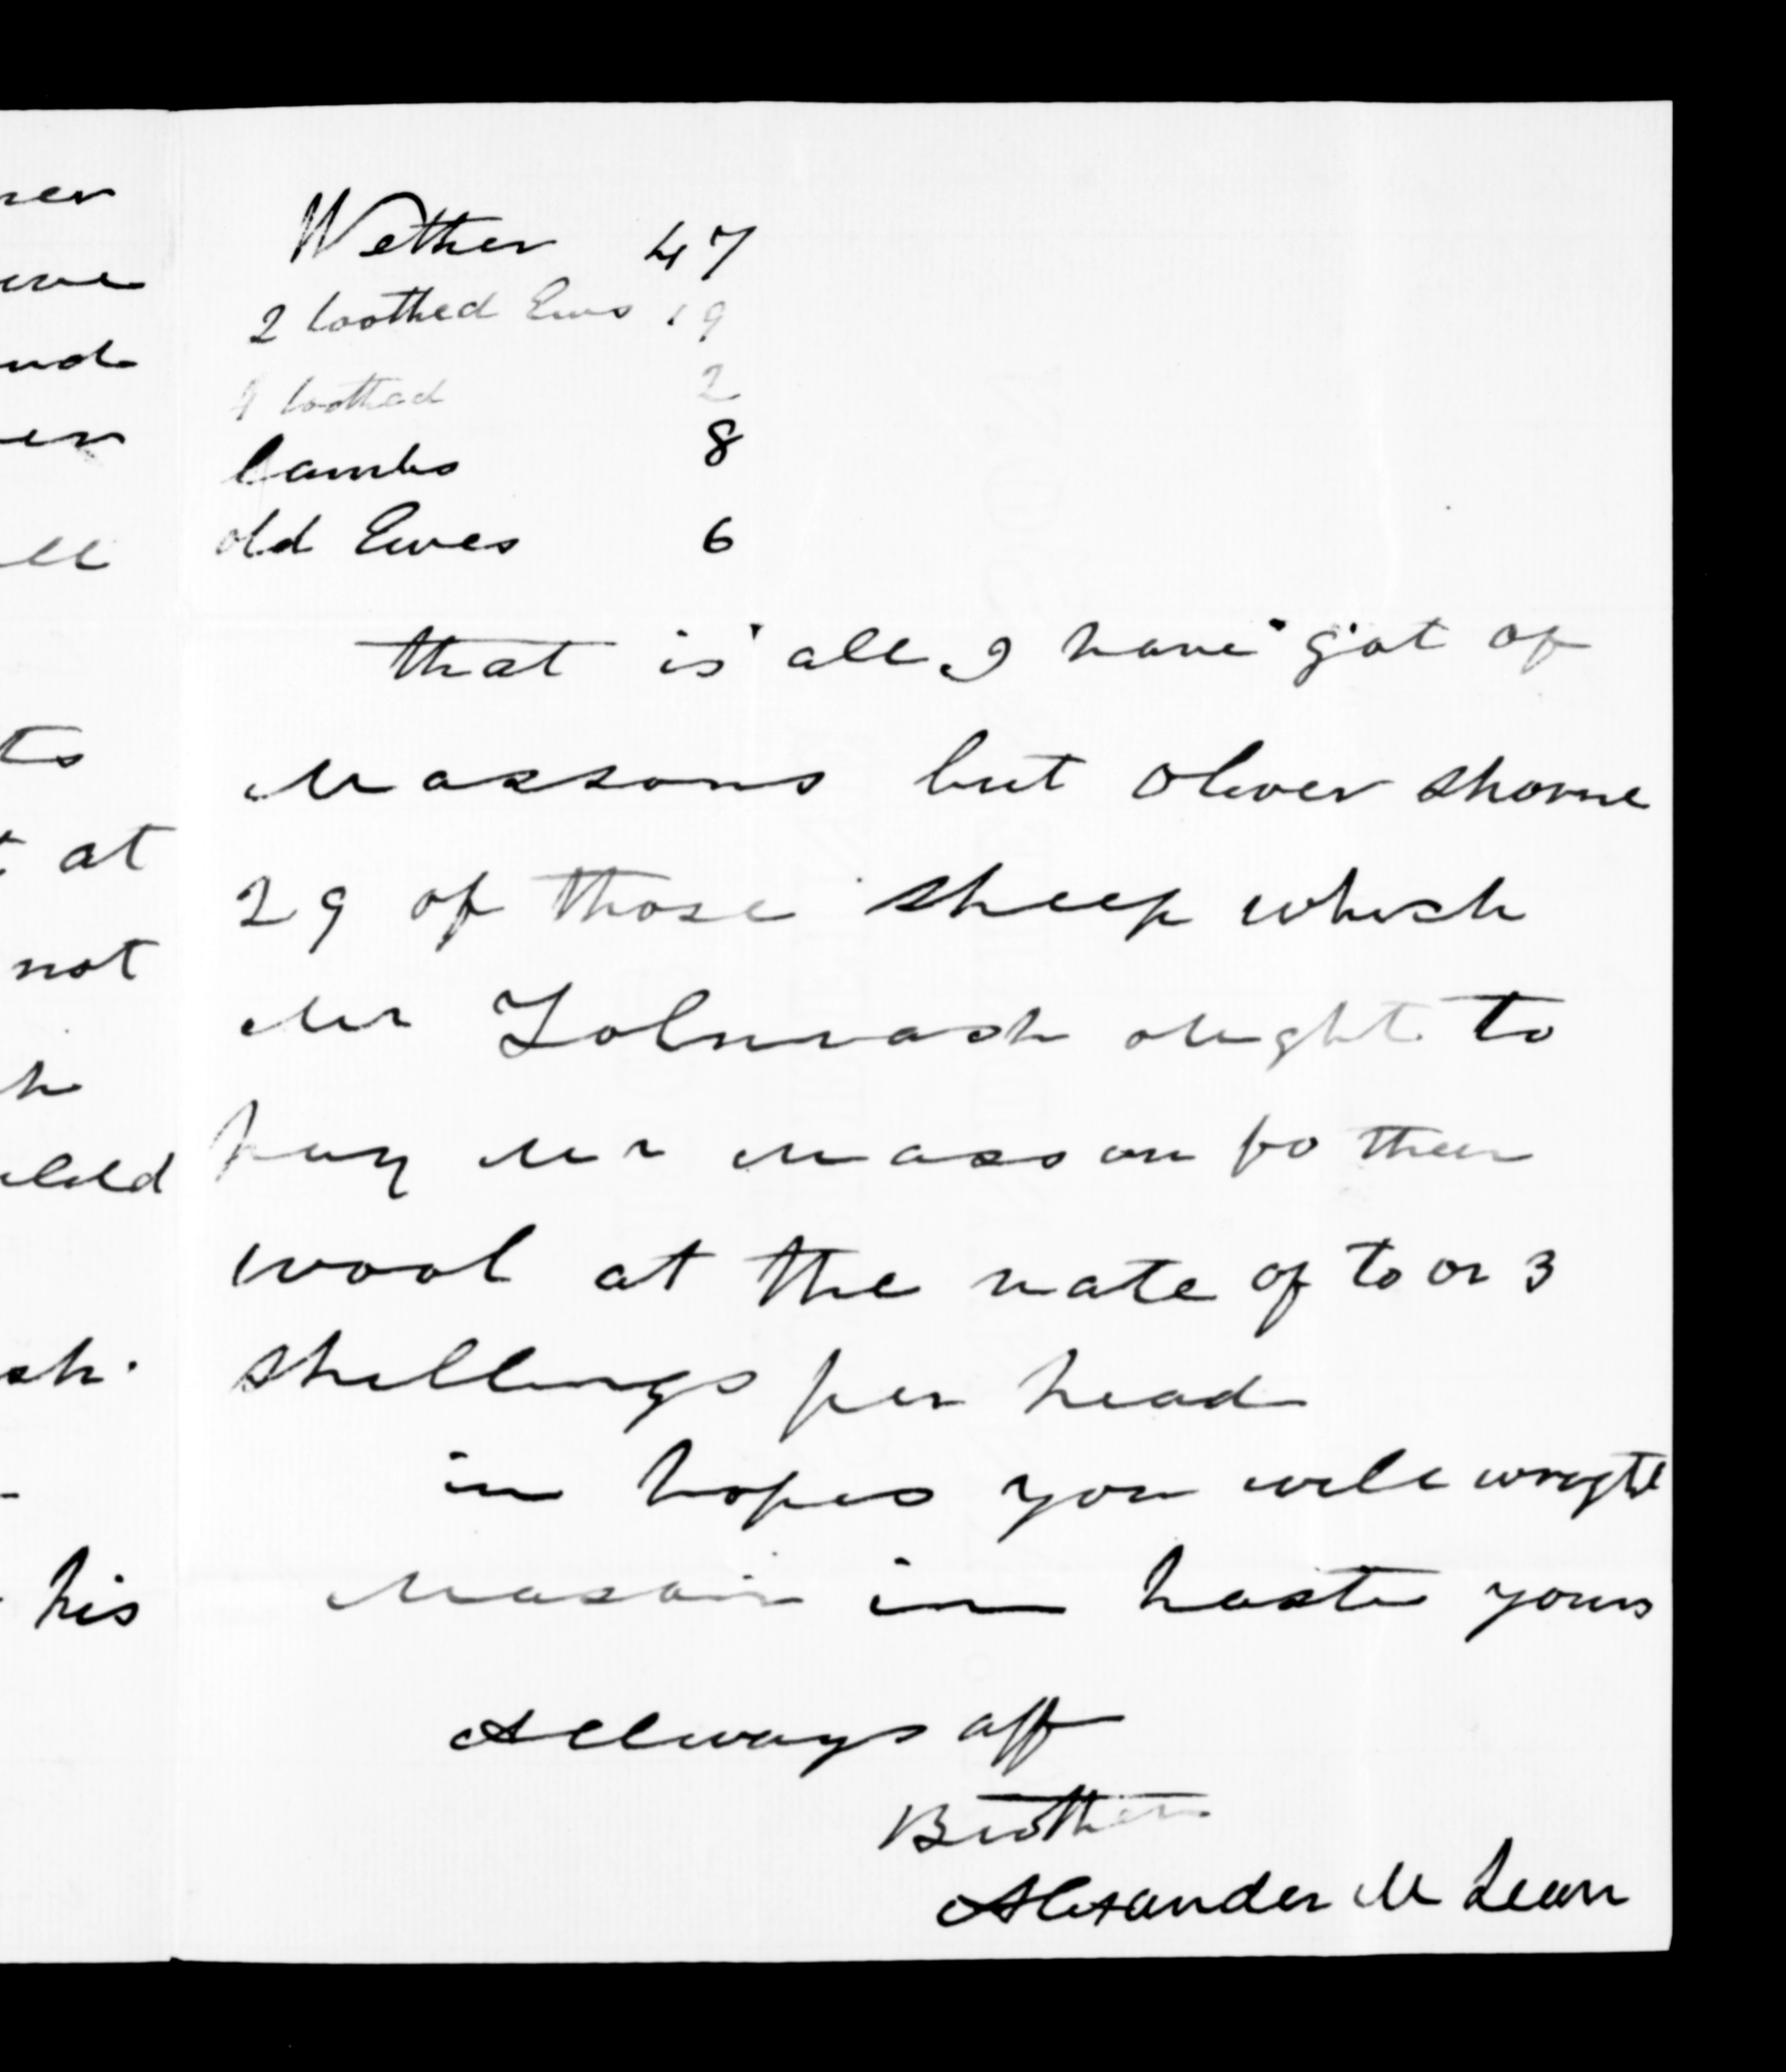 Wether 47
2 toothed Ews 19
4 toothed 2
lambs 8
old Ewes 6
that is all I have got of
Massons but Oliver shorne
29 of those sheep which
Mr ought to
pay Mr Masson fo their
wool at the rate of to or 3
shillings per head
in hopes you will wryte
Masson in haste yours
Allways aff
Brother
Alexander M Lean
at
not
his